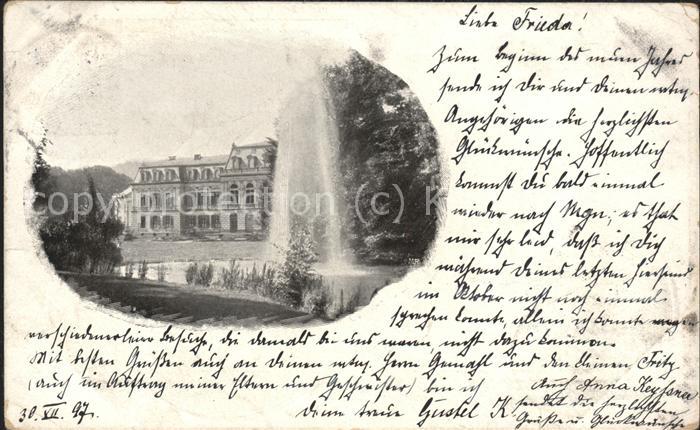 Liebe Frieda!
Zum Beginn des neuen Jahres
sende ich Dir und Deinen
Angehörigen die herzlichsten
Glückwünsche. Hoffentlich
kommst Du bald einmal
wieder nach Mgn; es that
mir sehr leid, daß ich Dich
während Deines letzten Hierseins
im Oktober nicht noch einmal
sprechen konnte, allein ich konnte wegen
verschiedenerleier Besuche, die damals bei uns waren, nicht dazu kommen.
Mit besten Grüßen auch an Deinen Herrn Gemahl und den kleinen Fritz
(auch im Auftrag meiner Eltern und Geschwister) bin ich
Deine treue Gustel K.
Auch Anna
sendet die herzlichsten
Grüße u. Glückwünsche
30. XII. 97.
copyright protection (c)